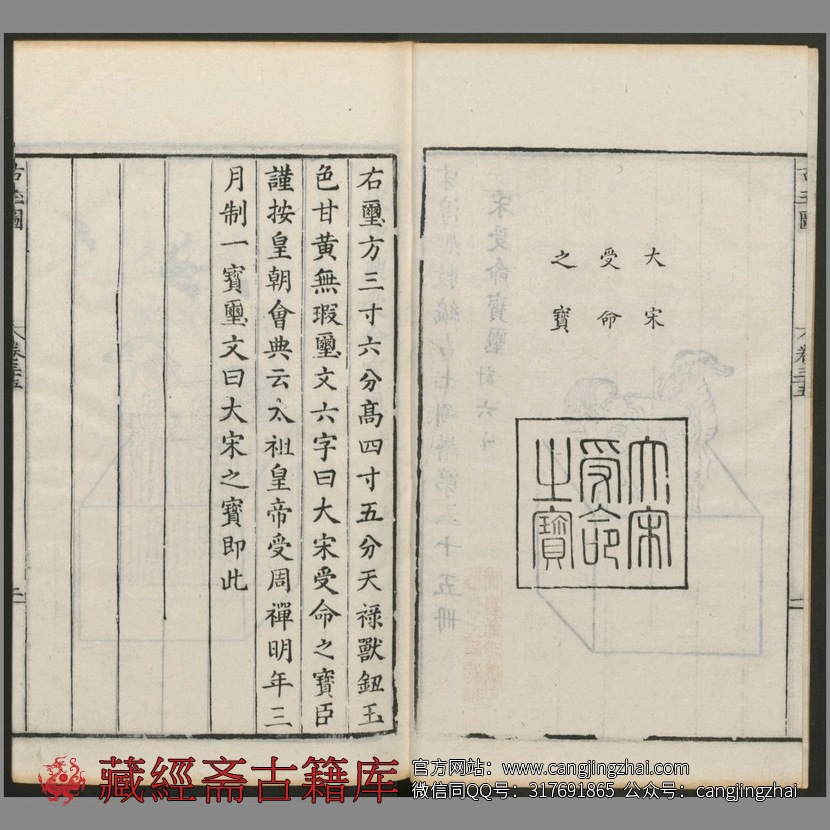 大宋
受命
之寶
大宋
受命
之寶
卷三五
一
右璽方三寸六分髙四寸五分天禄獸鈕玉
色甘黄無瑕璽文六字曰大宋受命之寶臣
謹按皇朝會典云太祖皇帝受周禪明年三
月制一寶璽文曰大宋之寶即此
古玉圖
卷三五
二
藏經斋古籍库
官方网站：www.cangjingzhai.com
微信同QQ号：317691865 公众号：cangjingzhai